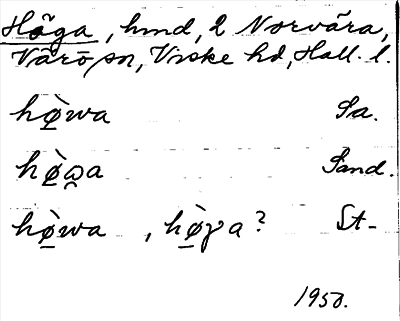 Höga, hmd, 2 Norvära,
Värö sn, Viske hd, Hall. l.
hø̀wa Sa.
hø̀ɷ̯a Sand.
hø̀wa, hø̀ɣa? St-
1950.